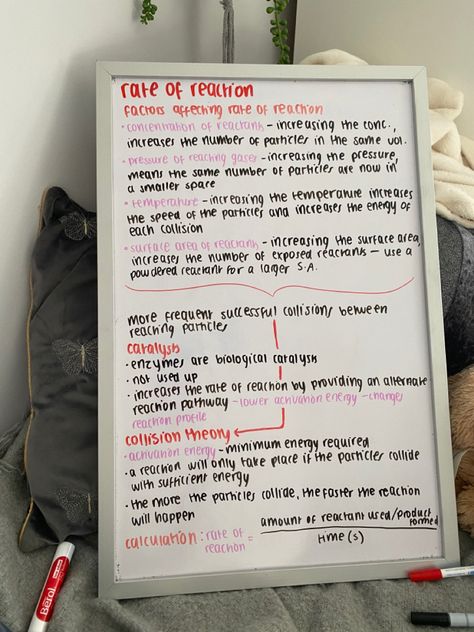 rate of reaction
factors affecting rate of reaction
• concentration of reactants – increasing the conc.,
increases the number of particles in the same vol.
• pressure of reacting gases – increasing the pressure,
means the same number of particles are now in
a smaller space
• temperature – increasing the temperature increases
the speed of the particles and increases the energy of
each collision
• surface area of reactants – increasing the surface area,
increases the number of exposed reactants – use a
powdered reactant for a larger S.A.
more frequent successful collisions between
reacting particles
catalysts
• enzymes are biological catalysts
• not used up
• increases the rate of reaction by providing an alternate
reaction pathway – lower activation energy – changes
reaction profile
collision theory
• activation energy – minimum energy required
• a reaction will only take place if the particles collide
with sufficient energy
• the more the particles collide, the faster the reaction
will happen
calculation: rate of reaction = amount of reactant used/product formed
time (s)
Berol